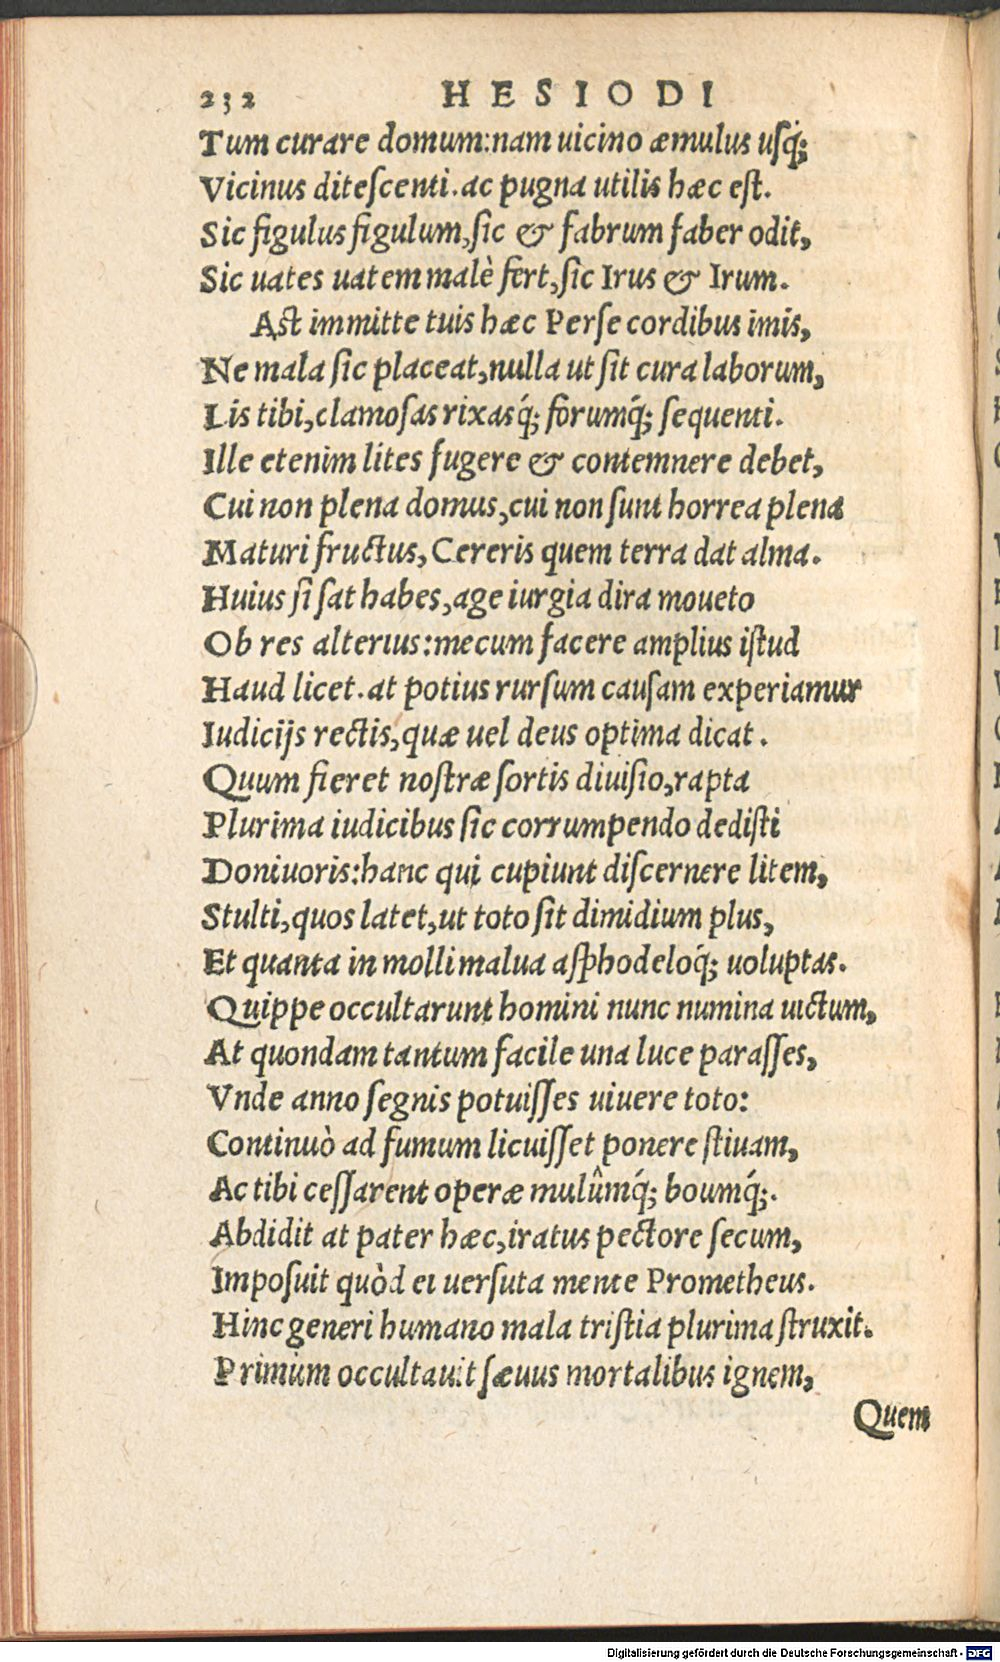 232 HESIODI
Tum curare domum:nam uicino æmulus usq́;
Vicinus ditescenti.ac pugna utilis hæc est.
Sic figulus figulum,sic & fabrum faber odit,
Sic uates uatem malè fert,sic Irus & Irum.
Ast immitte tuis hæc Perse cordibus imis,
Ne mala sic placeat,nulla ut sit cura laborum,
Lis tibi,clamosas rixasq́; forumq́; sequenti.
Ille etenim lites fugere & contemnere debet,
Cui non plena domus,cui non sunt horrea plena
Maturi fructus,Cereris quem terra dat alma.
Huius si sat habes,age iurgia dira moueto
Ob res alterius:mecum facere amplius istud
Haud licet.at potius rursum causam experiamur
Iudicijs rectis,quæ uel deus optima dicat.
Quum fieret nostræ sortis diuisio,rapta
Plurima iudicibus sic corrumpendo dedisti
Doniuoris:hanc qui cupiunt discernere litem,
Stulti,quos latet,ut toto sit dimidium plus,
Et quanta in molli malua asphodeloq́; uoluptas.
Quippe occultarunt homini nunc numina uictum,
At quondam tantum facile una luce parasses,
Vnde anno segnis potuisses uiuere toto:
Continuò ad fumum licuisset ponere stiuam,
Ac tibi cessarent operæ mulûmq́; boumq́;.
Abdidit at pater hæc,iratus pectore secum,
Imposuit quòd ei uersuta mente Prometheus.
Hinc generi humano mala tristia plurima struxit.
Primùm occultauit sæuus mortalibus ignem,
Quem
Digitalisierung gefördert durch die Deutsche Forschungsgemeinschaft - DFG